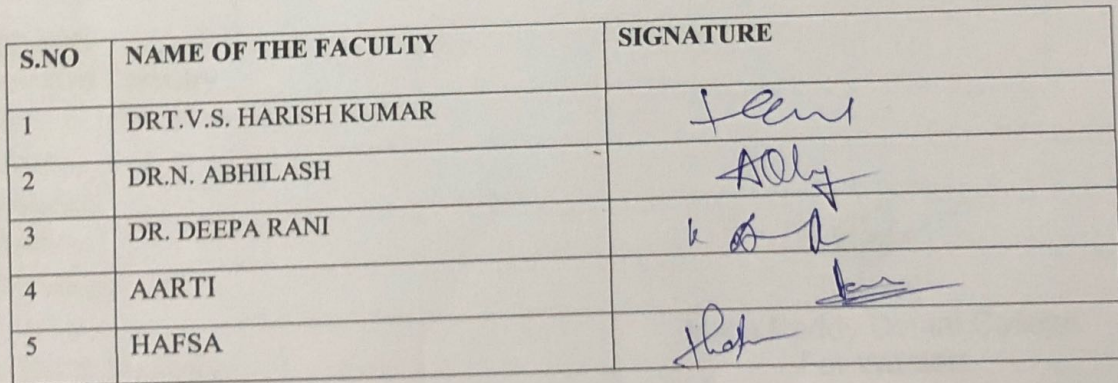 S.NO NAME OF THE FACULTY SIGNATURE
1 DRT.V.S. HARISH KUMAR
2 DR.N. ABHILASH
3 DR. DEEPA RANI
4 AARTI
5 HAFSA